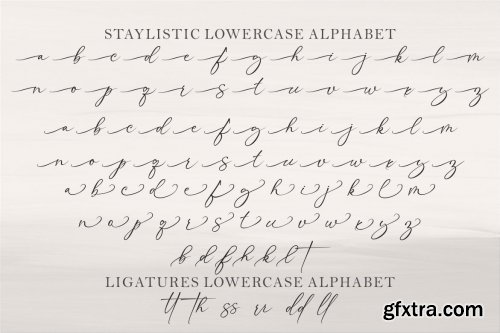 STAYLISTIC LOWERCASE ALPHABET
a b c d e f g h i j k l m
n o p q r s t u v w x y z
a b c d e f g h i j k l m
n o p q r s t u v w x y z
a b c d e f g h i j k l m
n o p q r s t u v w x y z
b d f h k l t
LIGATURES LOWERCASE ALPHABET
tt th ss rr dd ll
gfxtra.com